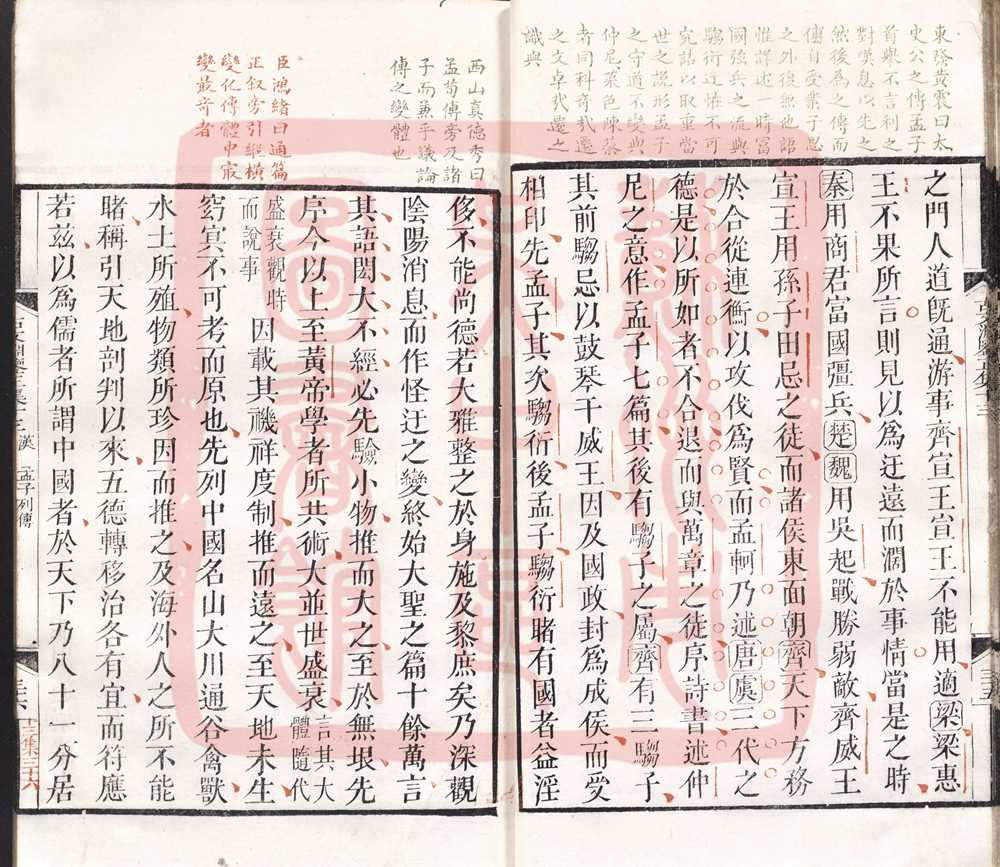 東發黃震曰太
史公之傳孟子
首舉不言利之
對嘆息以先之
然後為之傳而
傳自受業子思
之外復無他語
惟詳述一時富
國強兵之流與
騶衍迂怪不可
究詰以取重當
世之說形孟子
之守道不變與
仲尼菜色陳蔡
者同科奇哉遷
之文卓哉遷之
識與
之門人道旣通游事齊宣王宣王不能用適梁梁惠
王不果所言則見以爲迂遠而濶於事情當是之時
秦用商君富國彊兵楚魏用吳起戰勝弱敵齊威王
宣王用孫子田忌之徒而諸侯東面朝齊天下方務
於合從連衡以攻伐爲賢而孟軻乃述唐虞三代之
德是以所如者不合退而與萬章之徒序詩書述仲
尼之意作孟子七篇其後有騶子之屬齊有三騶子
其前騶忌以鼓琴干威王因及國政封爲成侯而受
相印先孟子其次騶衍後孟子騶衍睹有國者益淫
西山真德秀曰
孟荀傳旁及諸
子而兼乎議論
傳之變體也
臣鴻緒曰通篇
正叙旁引縱橫
變化傳體中最
變最奇者
侈不能尚德若大雅整之於身施及黎庶矣乃深觀
陰陽消息而作怪迂之變終始大聖之篇十餘萬言
其語閎大不經必先驗小物推而大之至於無垠先
序今以上至黃帝學者所共術大並世盛衰言其大體隨代
盛衰觀時而說事因載其禨祥度制推而遠之至天地未生
窈冥不可考而原也先列中國名山大川通谷禽獸
水土所殖物類所珍因而推之及海外人之所不能
睹稱引天地剖判以來五德轉移治各有宜而符應
若茲以爲儒者所謂中國者於天下乃八十一分居
漢 孟子列傳
三六
十三集三十六